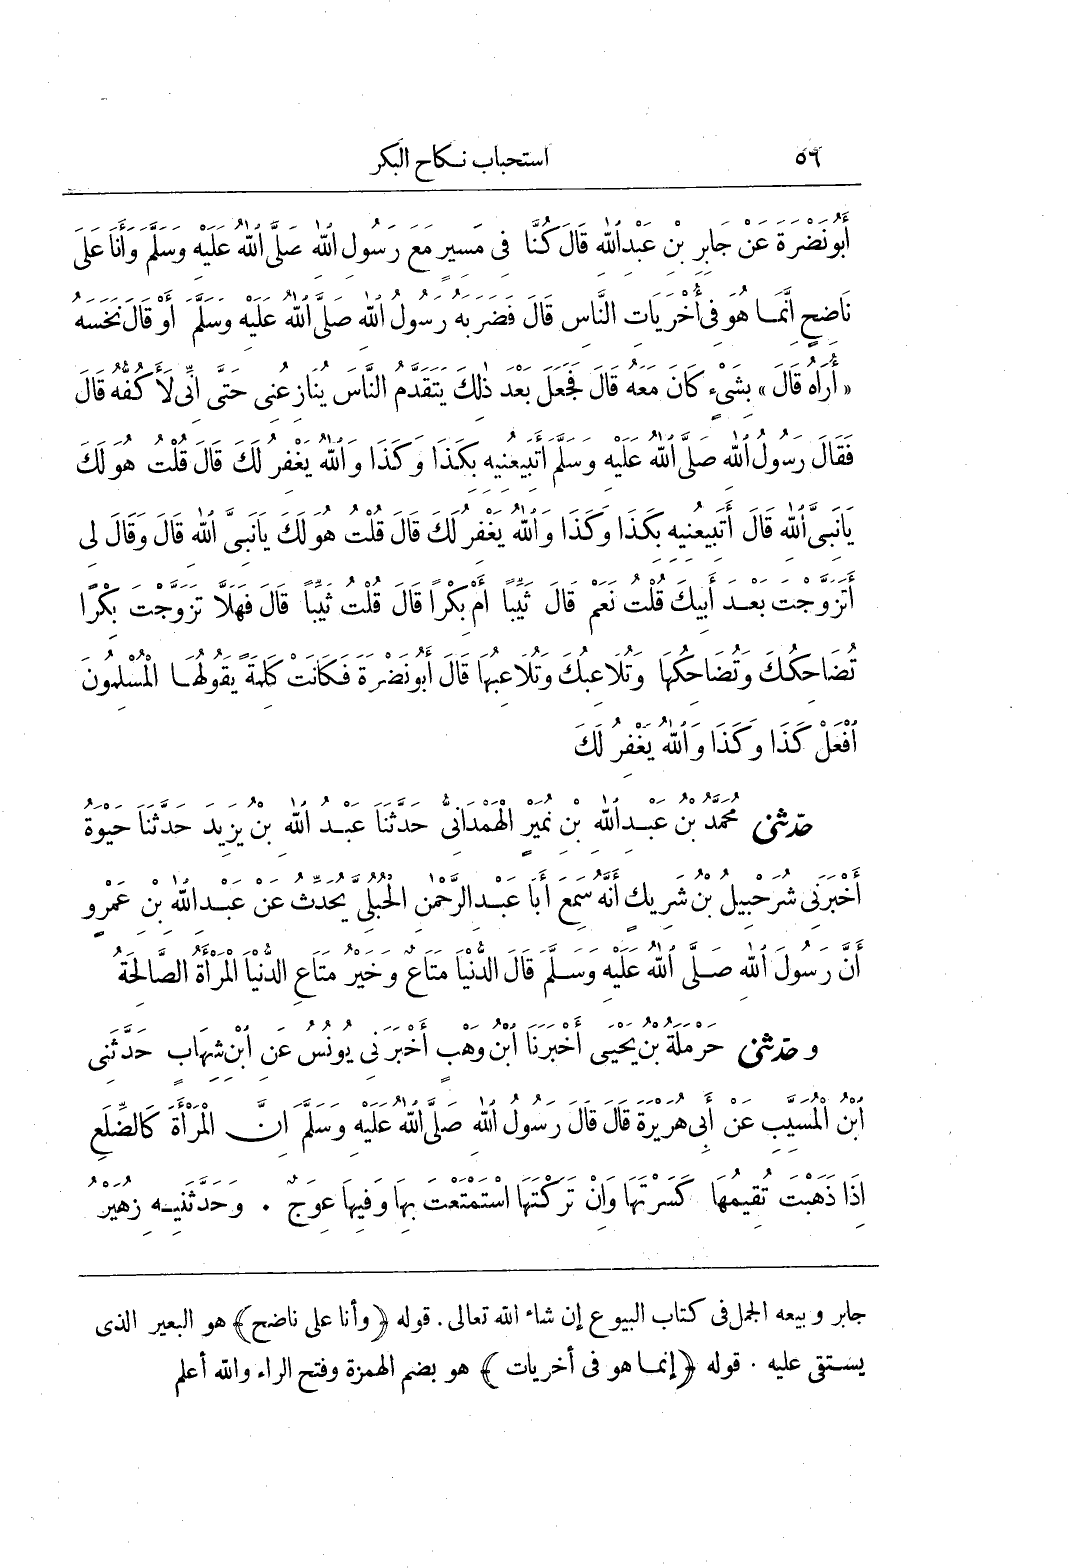 ٥٦ استحباب نكاح البكر
أَبُو نَضْرَةَ عَنْ جَابِرِ بْنِ عَبْدِ اللهِ قَالَ كُنَّا فِي مَسِيرٍ مَعَ رَسُولِ اللهِ صَلَّى اللهُ عَلَيْهِ وَسَلَّمَ وَأَنَا عَلَى
نَاضِحٍ إِنَّمَا هُوَ فِي أُخْرَيَاتِ النَّاسِ قَالَ فَضَرَبَهُ رَسُولُ اللهِ صَلَّى اللهُ عَلَيْهِ وَسَلَّمَ أَوْ قَالَ نَخَسَهُ
«أُرَاهُ قَالَ» بِشَيْءٍ كَانَ مَعَهُ قَالَ فَجَعَلَ بَعْدَ ذٰلِكَ يَتَقَدَّمُ النَّاسَ يُنَازِعُنِي حَتَّى إِنِّي لَأَكُفُّهُ قَالَ
فَقَالَ رَسُولُ اللهِ صَلَّى اللهُ عَلَيْهِ وَسَلَّمَ أَتَبِيعُنِيهِ بِكَذَا وَكَذَا وَاللهُ يَغْفِرُ لَكَ قَالَ قُلْتُ هُوَ لَكَ
يَا نَبِيَّ اللهِ قَالَ أَتَبِيعُنِيهِ بِكَذَا وَكَذَا وَاللهُ يَغْفِرُ لَكَ قَالَ قُلْتُ هُوَ لَكَ يَا نَبِيَّ اللهِ قَالَ وَقَالَ لِي
أَتَزَوَّجْتَ بَعْدَ أَبِيكَ قُلْتُ نَعَمْ قَالَ ثَيِّبًا أَمْ بِكْرًا قَالَ قُلْتُ ثَيِّبًا قَالَ فَهَلَّا تَزَوَّجْتَ بِكْرًا
تُضَاحِكُكَ وَتُضَاحِكُهَا وَتُلَاعِبُكَ وَتُلَاعِبُهَا قَالَ أَبُو نَضْرَةَ فَكَانَتْ كَلِمَةً يَقُولُهَا الْمُسْلِمُونَ
افْعَلْ كَذَا وَكَذَا وَاللهُ يَغْفِرُ لَكَ
حدثني مُحَمَّدُ بْنُ عَبْدِ اللهِ بْنِ نُمَيْرٍ الْهَمْدَانِيُّ حَدَّثَنَا عَبْدُ اللهِ بْنُ يَزِيدَ حَدَّثَنَا حَيْوَةُ
أَخْبَرَنِي شُرَحْبِيلُ بْنُ شَرِيكٍ أَنَّهُ سَمِعَ أَبَا عَبْدِ الرَّحْمٰنِ الْحُبُلِيَّ يُحَدِّثُ عَنْ عَبْدِ اللهِ بْنِ عَمْرٍو
أَنَّ رَسُولَ اللهِ صَلَّى اللهُ عَلَيْهِ وَسَلَّمَ قَالَ الدُّنْيَا مَتَاعٌ وَخَيْرُ مَتَاعِ الدُّنْيَا الْمَرْأَةُ الصَّالِحَةُ
و حدثني حَرْمَلَةُ بْنُ يَحْيَى أَخْبَرَنَا ابْنُ وَهْبٍ أَخْبَرَنِي يُونُسُ عَنِ ابْنِ شِهَابٍ حَدَّثَنِي
ابْنُ الْمُسَيِّبِ عَنْ أَبِي هُرَيْرَةَ قَالَ قَالَ رَسُولُ اللهِ صَلَّى اللهُ عَلَيْهِ وَسَلَّمَ إِنَّ الْمَرْأَةَ كَالضِّلَعِ
إِذَا ذَهَبْتَ تُقِيمُهَا كَسَرْتَهَا وَإِنْ تَرَكْتَهَا اسْتَمْتَعْتَ بِهَا وَفِيهَا عِوَجٌ . وَحَدَّثَنِيهِ زُهَيْرُ
جابر وبيعه الجمل فى كتاب البيوع إن شاء الله تعالى. قوله ﴿وأنا على ناضح﴾ هو البعير الذى
يستقى عليه . قوله ﴿إنما هو فى أخريات﴾ هو بضم الهمزة وفتح الراء والله أعلم